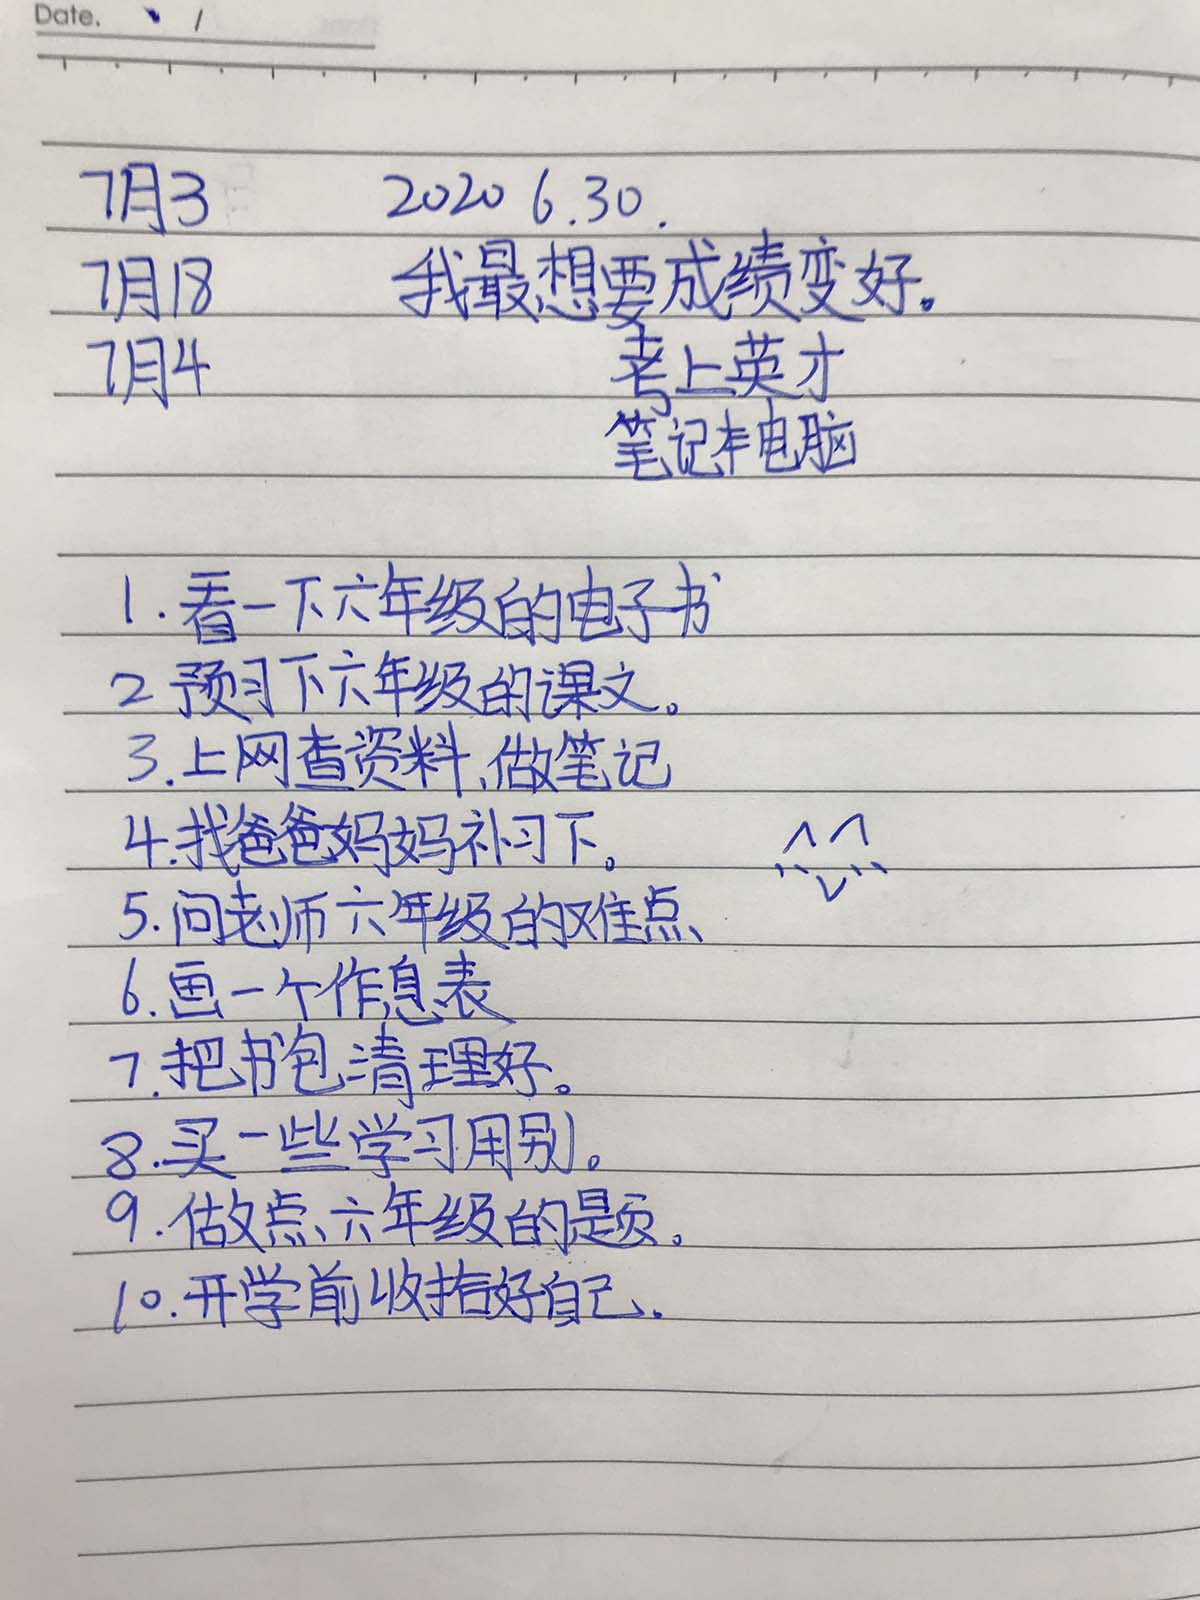 Date. /
7月3 2020 6.30.
7月18 我最想要成绩变好。
7月4 考上英才
笔记本电脑
1.看一下六年级的电子书
2 预习下六年级的课文。
3.上网查资料、做笔记
4.找爸爸妈妈补习下。
5.问老师六年级的难点
6.画一个作息表
7.把书包清理好。
8.买一些学习用别。
9.做点六年级的题。
10.开学前收拾好自己.